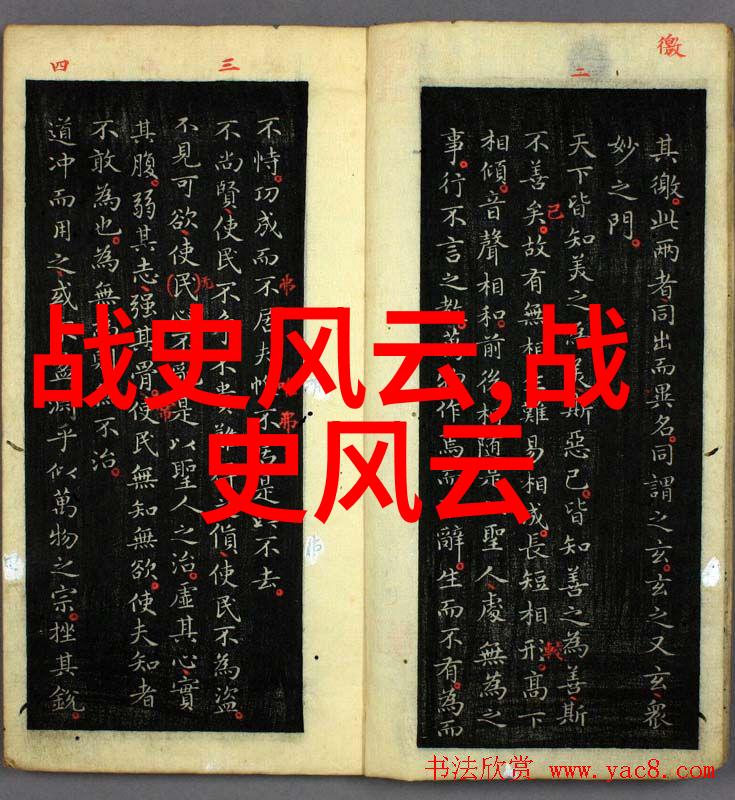 徼
二
其徼。此兩者同出而異名。同謂之玄。玄之又玄。眾
妙之門。
天下皆知美之為美斯惡已。皆知善之為善斯
不善矣。故有無相生難易相成。長短相形。高下
相傾。音聲相和。前後相隨。是聖人處無為之
事。行不言之教。萬作焉而辭。生而不有。為而
己
較
三
四
不恃。功成而不居。夫惟不居是不去。
不尚賢使民不不貴難之使民不為盜。
不見可欲使民心不是以聖人之治。虛其心實
其腹。弱其志強其骨。使民無知無欲。使夫知者
不敢為也。為無不治。
道冲而用之或淵乎似萬物之宗。挫其銳。
弗
弗
无
战史风云,战
史风云
书法欣赏 www.yac8.com